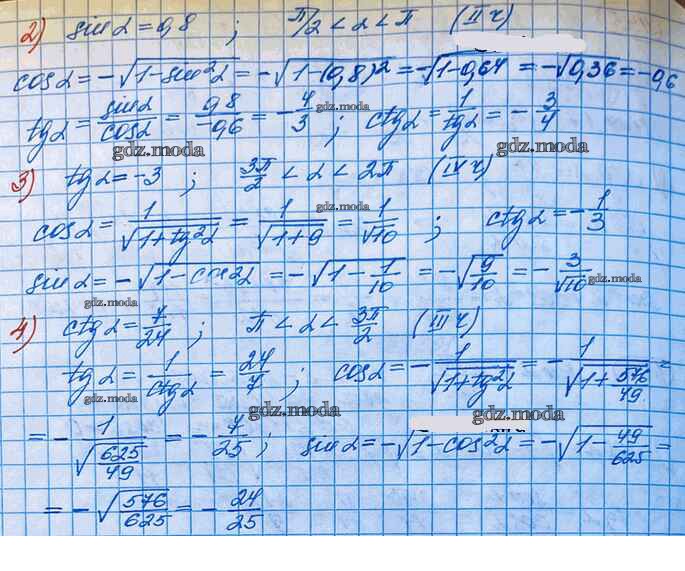 2) sin α = 0,8 ; π/2 < α < π (II ч)
cos α = -√(1-sin²α) = -√(1-(0,8)²) = -√(1-0,64) = -√0,36 = -0,6
tg α = sin α/cos α = 0,8/-0,6 = -4/3 ; ctg α = 1/tg α = -3/4
gdz.moda
gdz.moda gdz.moda
3) tg α = -3 ; 3π/2 < α < 2π (IV ч)
gdz.moda
cos α = 1/√(1+tg²α) = 1/√(1+9) = 1/√10 ; ctg α = -1/3
gdz.moda
sin α = -√(1-cos²α) = -√(1-1/10) = -√(9/10) = -3/√10
gdz.moda gdz.moda
4) ctg α = 7/24 ; π < α < 3π/2 (III ч)
gdz.moda
tg α = 1/ctg α = 24/7 ; cos α = -1/√(1+tg²α) = -1/√(1+576/49) =
gdz.moda gdz.moda gdz.moda
= -1/√(625/49) = -7/25 ; sin α = -√(1-cos²α) = -√(1-49/625) =
= -√(576/625) = -24/25